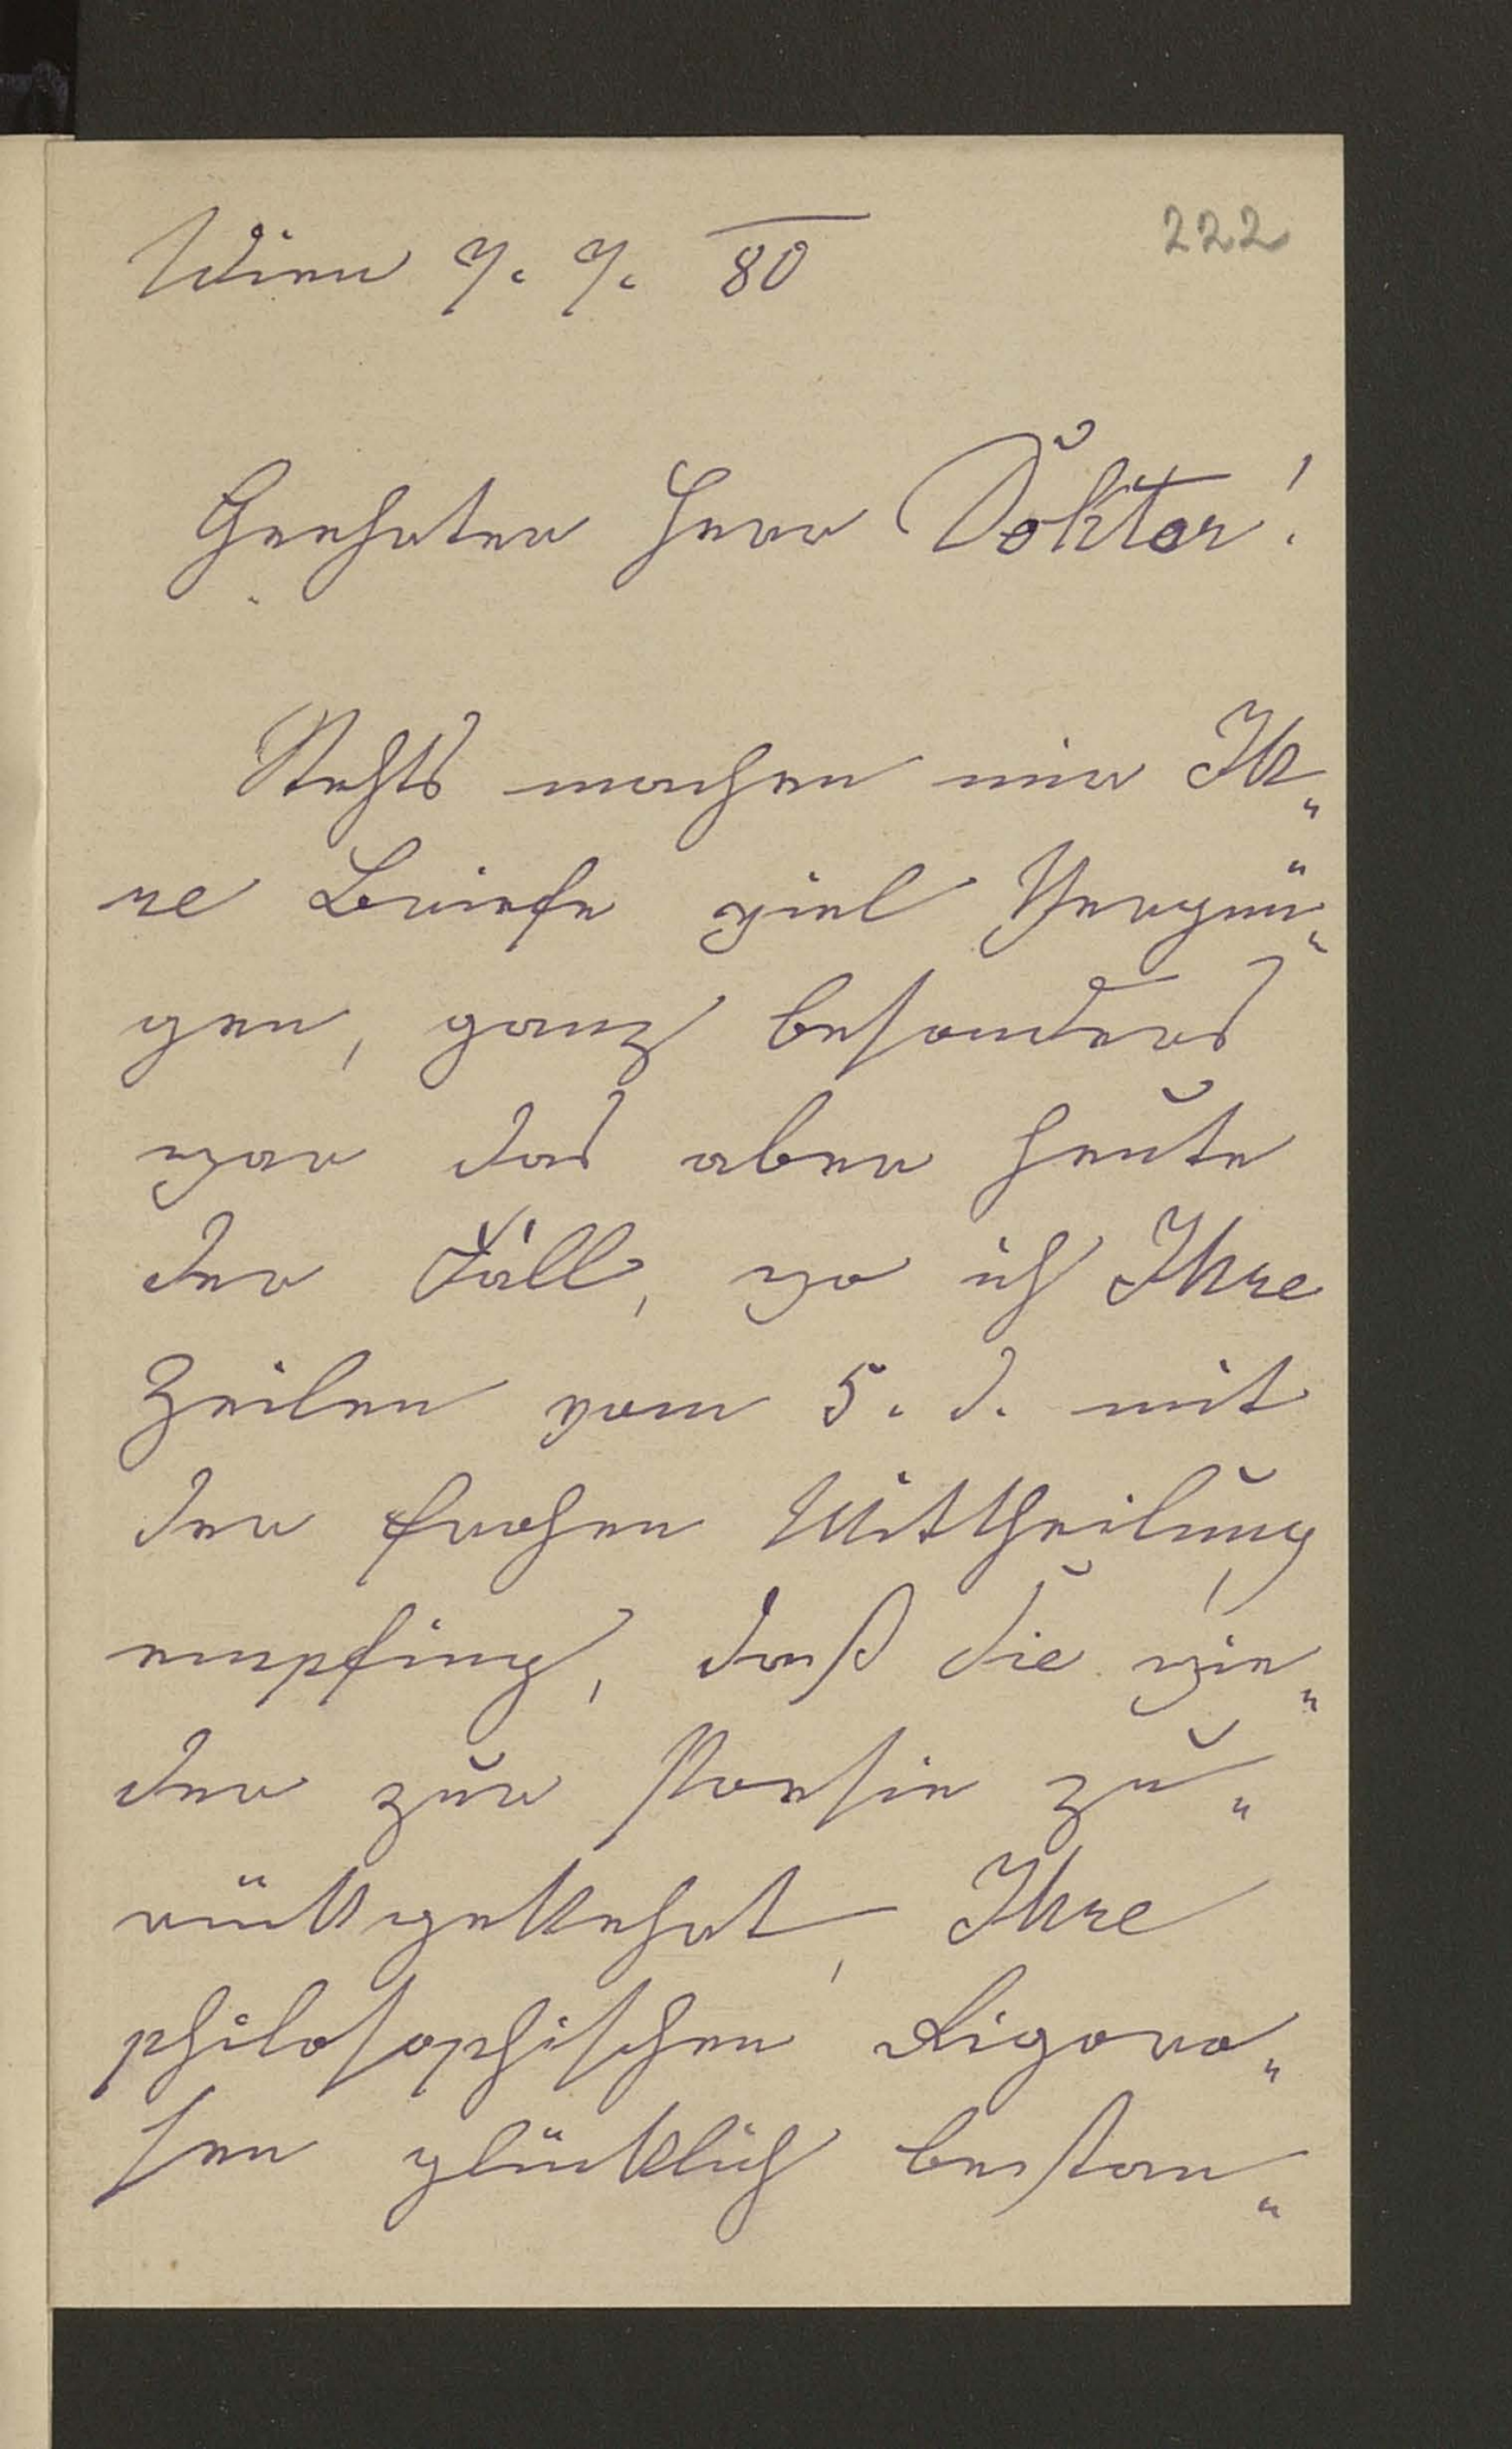 222
Wien 7. 7. 80
Geehrter Herr Doktor!
Stehts machen mir Ih„
re Briefe viel Vergnü„
gen, ganz besonders
war das aber heute
der Fall, wo ich Ihre
Zeilen vom 5. d. mit
der frohen Mittheilung
empfing, daß Sie wie„
der zur Poesie zu„
rückgekehrt, Ihre
philosophischen Rigoro„
sen glücklich bestan„